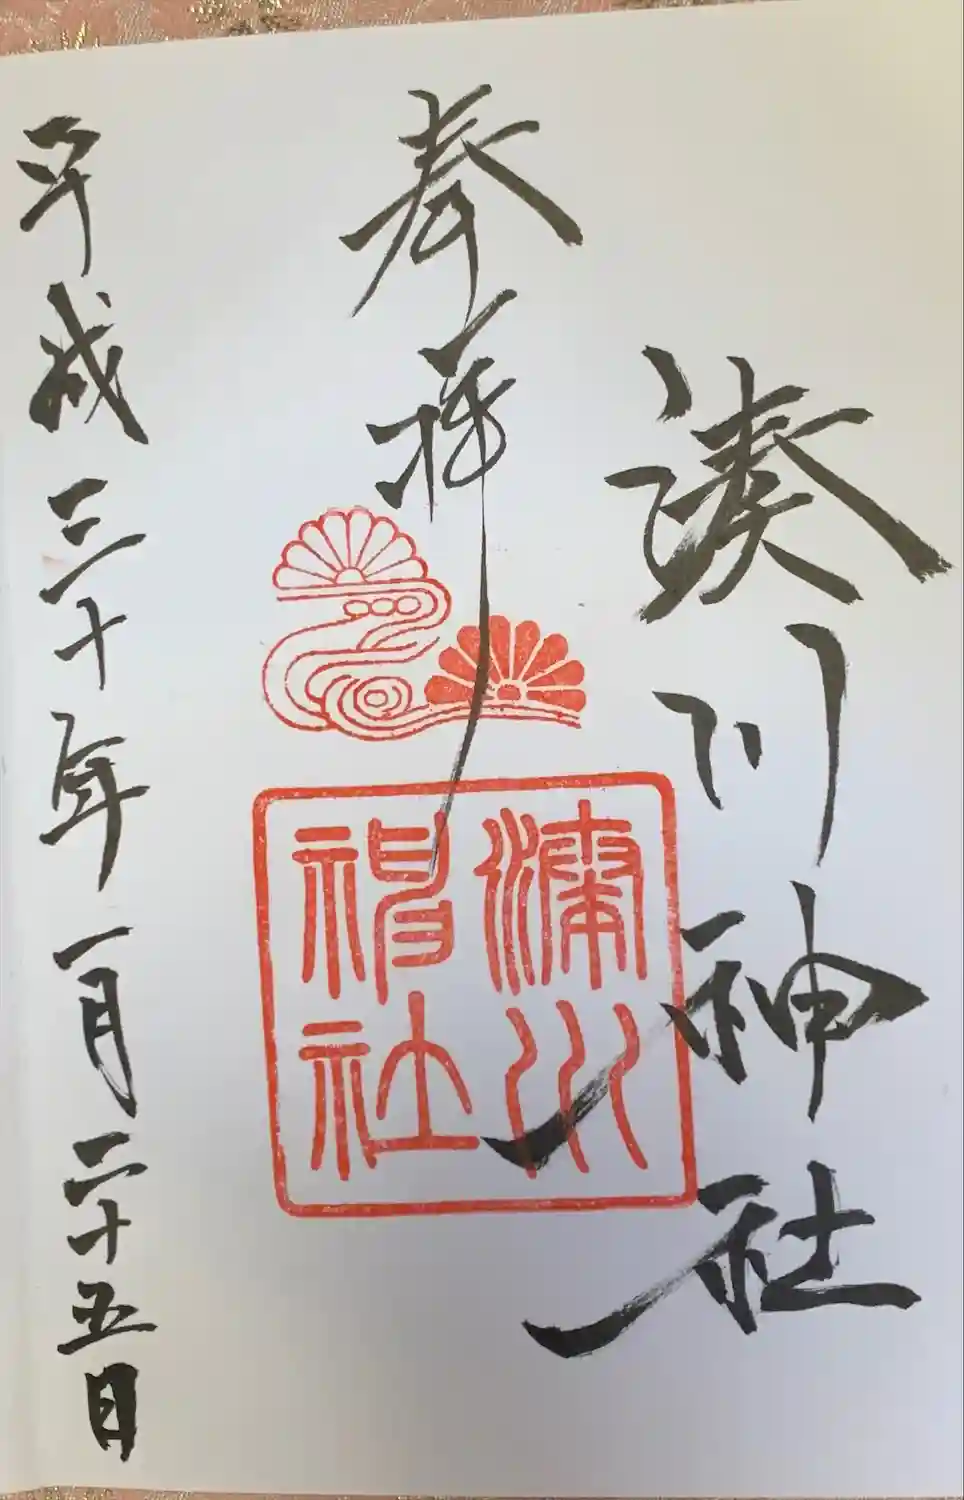 湊川神社
奉拝
湊川
神社
平成三十年一月二十五日